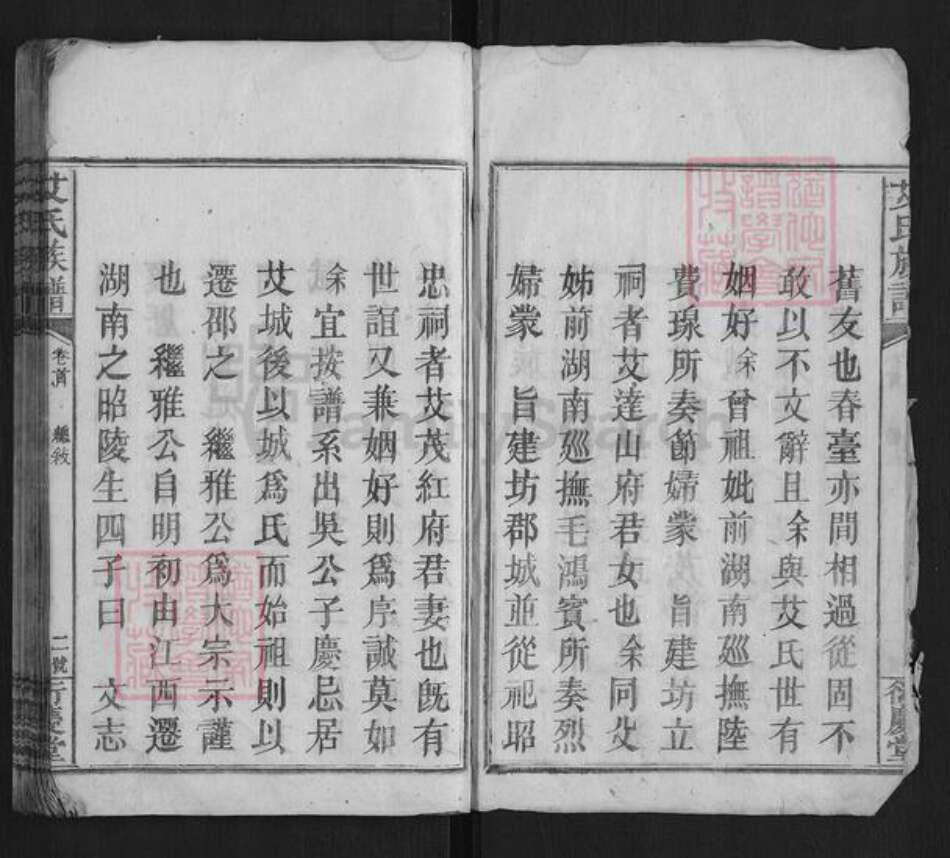 艾氏族譜
舊友也春臺亦間相過從固不
敢以不文辭且余與艾氏世有
姻好余曾祖妣前湖南廵撫陸
費瑔所奏節婦蒙 旨建坊立
祠者艾達山府君女也余同父
姊前湖南廵撫毛鴻賓所奏烈
婦蒙 旨建坊郡城並從祀昭
忠祠者艾茂紅府君妻也旣有
世誼又兼姻好則爲序誠莫如
余宜按譜系出吳公子慶忌居
艾城後以城爲氏而始祖則以
遷邵之 繼雅公爲大宗示謹
也 繼雅公自明初由江西遷
湖南之昭陵生四子曰 文志
艾氏族譜 卷首 總敘 二號 衍慶堂